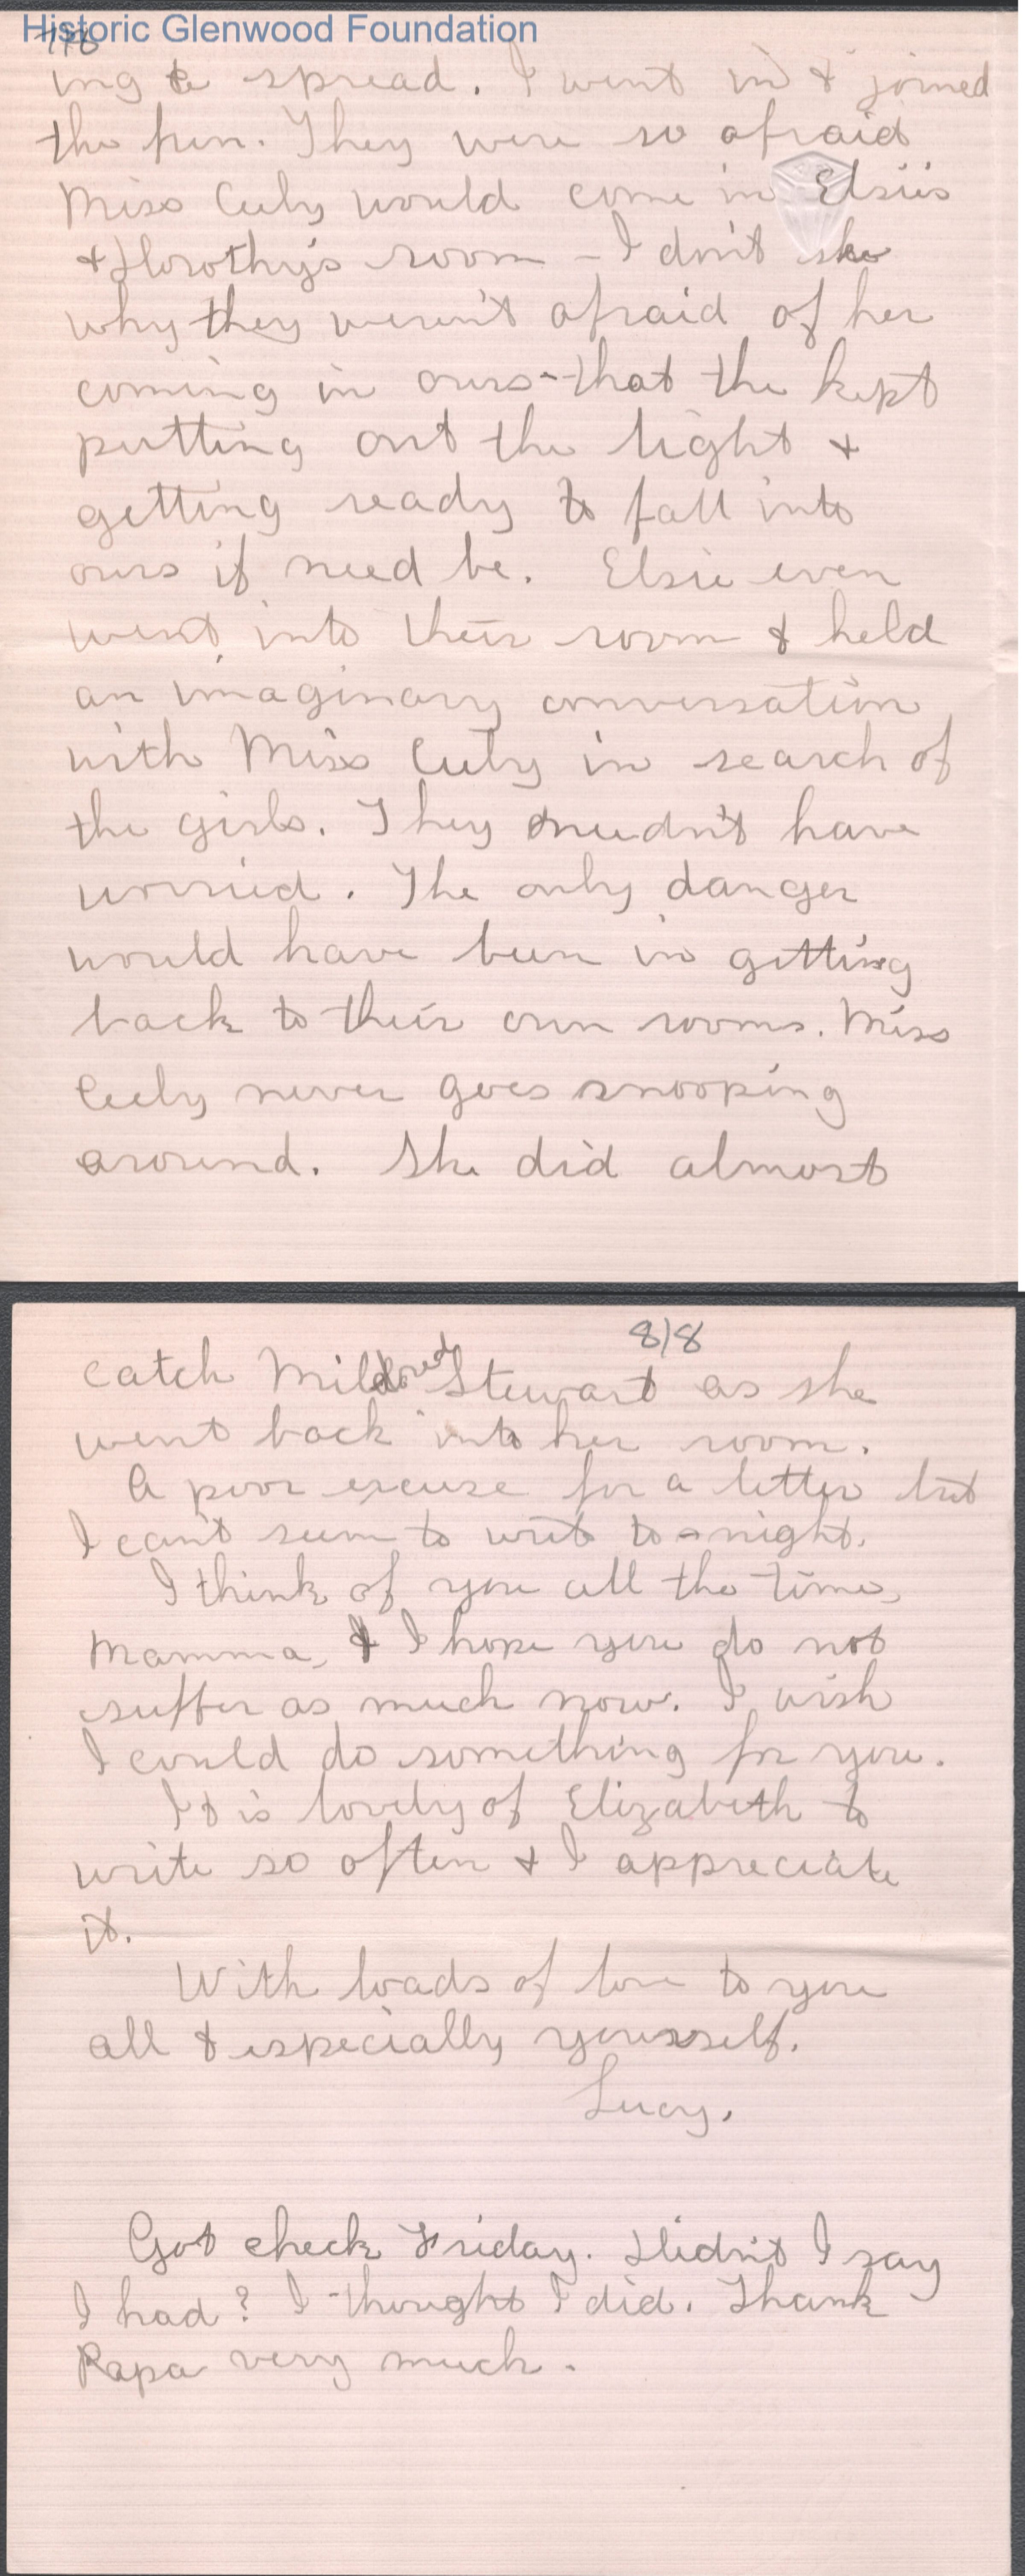 Historic Glenwood Foundation
7/8
ing a spread. I went in & joined
the fun. They were so afraid
Miss Cuby would come in Elsie's
& Dorothy's room – I don't see
why they weren't afraid of her
coming in ours – that the kept
putting out the light &
getting ready to fall into
ours if need be. Elsie even
went into their room & held
an imaginary conversation
with Miss Cuby in search of
the girls. They needn't have
worried. The only danger
would have been in getting
back to their own rooms. Miss
Cuby never goes snooping
around. She did almost
8/8
catch Mildred Stewart as she
went back into her room.
A poor excuse for a letter but
I can't seem to write to-night.
I think of you all the time,
Mamma, & I hope you do not
suffer as much now. I wish
I could do something for you.
It is lovely of Elizabeth to
write so often & I appreciate
it.
With loads of love to you
all & especially yourself.
Lucy.
Got check Friday. Didn't I say
I had? I thought I did. Thank
Papa very much.